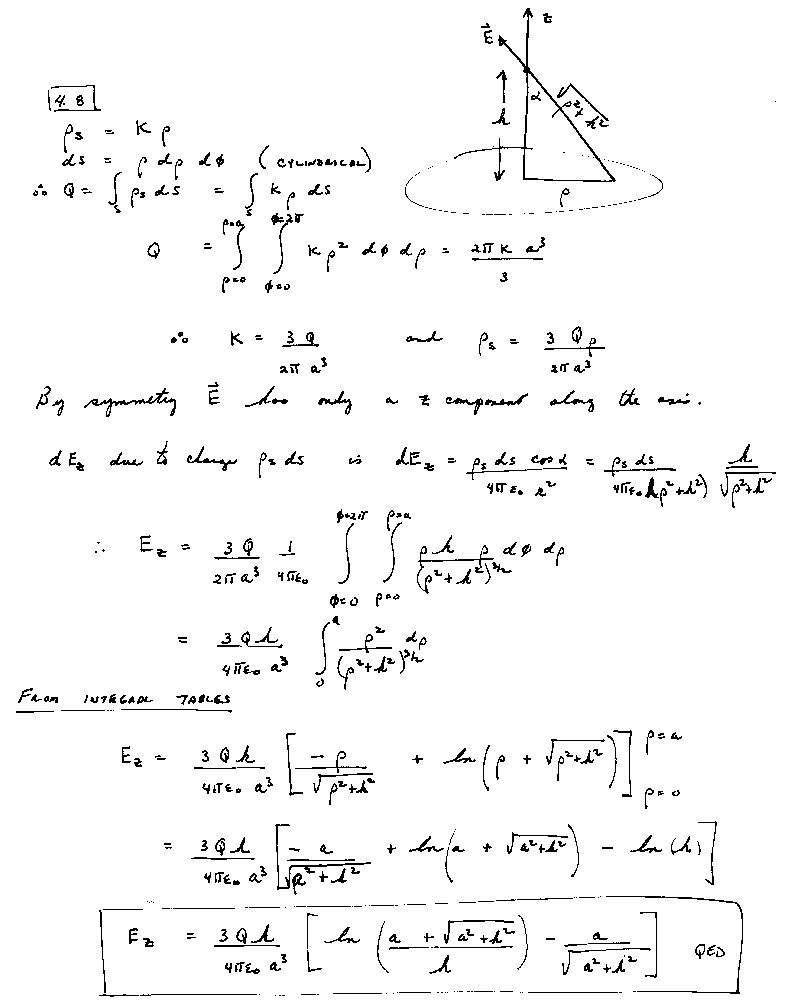 z
E⃗
α
√ρ²+h²
h
ρ
4.8
ρs = K ρ
ds = ρ dρ dφ (CYLINDRICAL)
∴ Q = ∫s ρs ds = ∫s K ρ ds
Q = ∫ρ=0^ρ=a ∫φ=0^φ=2π K ρ² dφ dρ = 2π K a³ / 3
∴ K = 3 Q / 2π a³ and ρs = 3 Q ρ / 2π a³
By symmetry E⃗ has only a z component along the axis.
dEz due to charge ρs ds is dEz = ρs ds cos α / 4πε₀ r² = ρs ds / 4πε₀(ρ²+h²) h / √ρ²+h²
∴ Ez = 3 Q / 2π a³ 1 / 4πε₀ ∫φ=0^φ=2π ∫ρ=0^ρ=a ρ h ρ dφ dρ / (ρ²+h²)^3/2
= 3 Q h / 4πε₀ a³ ∫0^a ρ² / (ρ²+h²)^3/2 dρ
FROM INTEGRAL TABLES
Ez = 3 Q h / 4πε₀ a³ [ -ρ / √ρ²+h² + ln(ρ + √ρ²+h²) ] ρ=a ρ=0
= 3 Q h / 4πε₀ a³ [ -a / √a²+h² + ln(a + √a²+h²) - ln(h) ]
Ez = 3 Q h / 4πε₀ a³ [ ln (a + √a²+h² / h) - a / √a²+h² ] QED